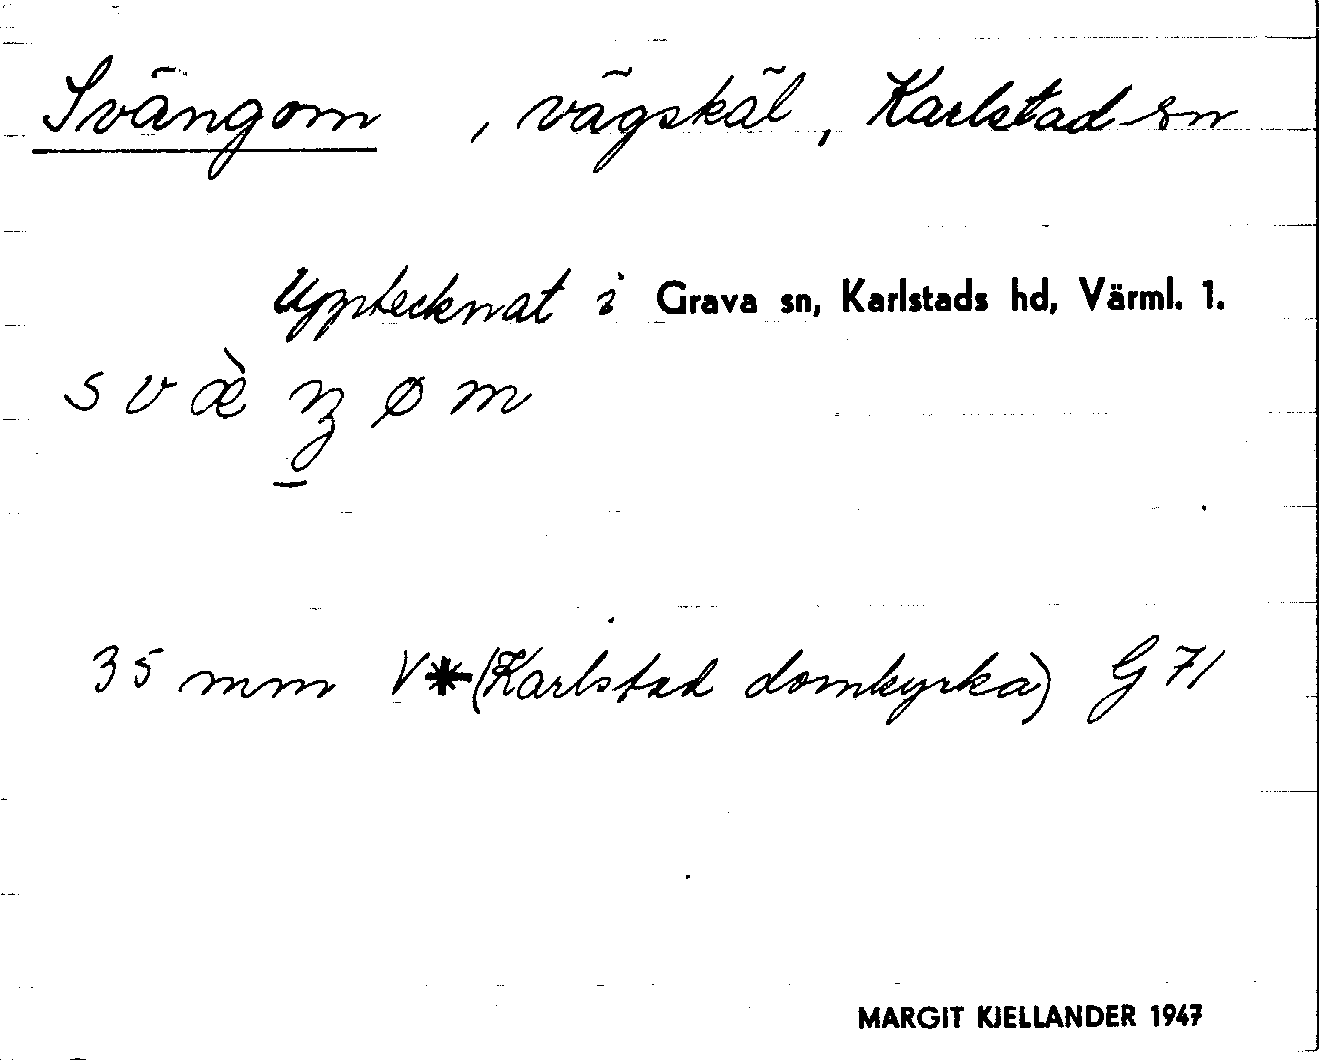 Svängom , vägskäl, Karlstad sn
Upptecknat i Grava sn, Karlstads hd, Värml. l.
svæ̀ŋøm
35 mm V* (Karlstad domkyrka) G 71
MARGIT KJELLANDER 1947